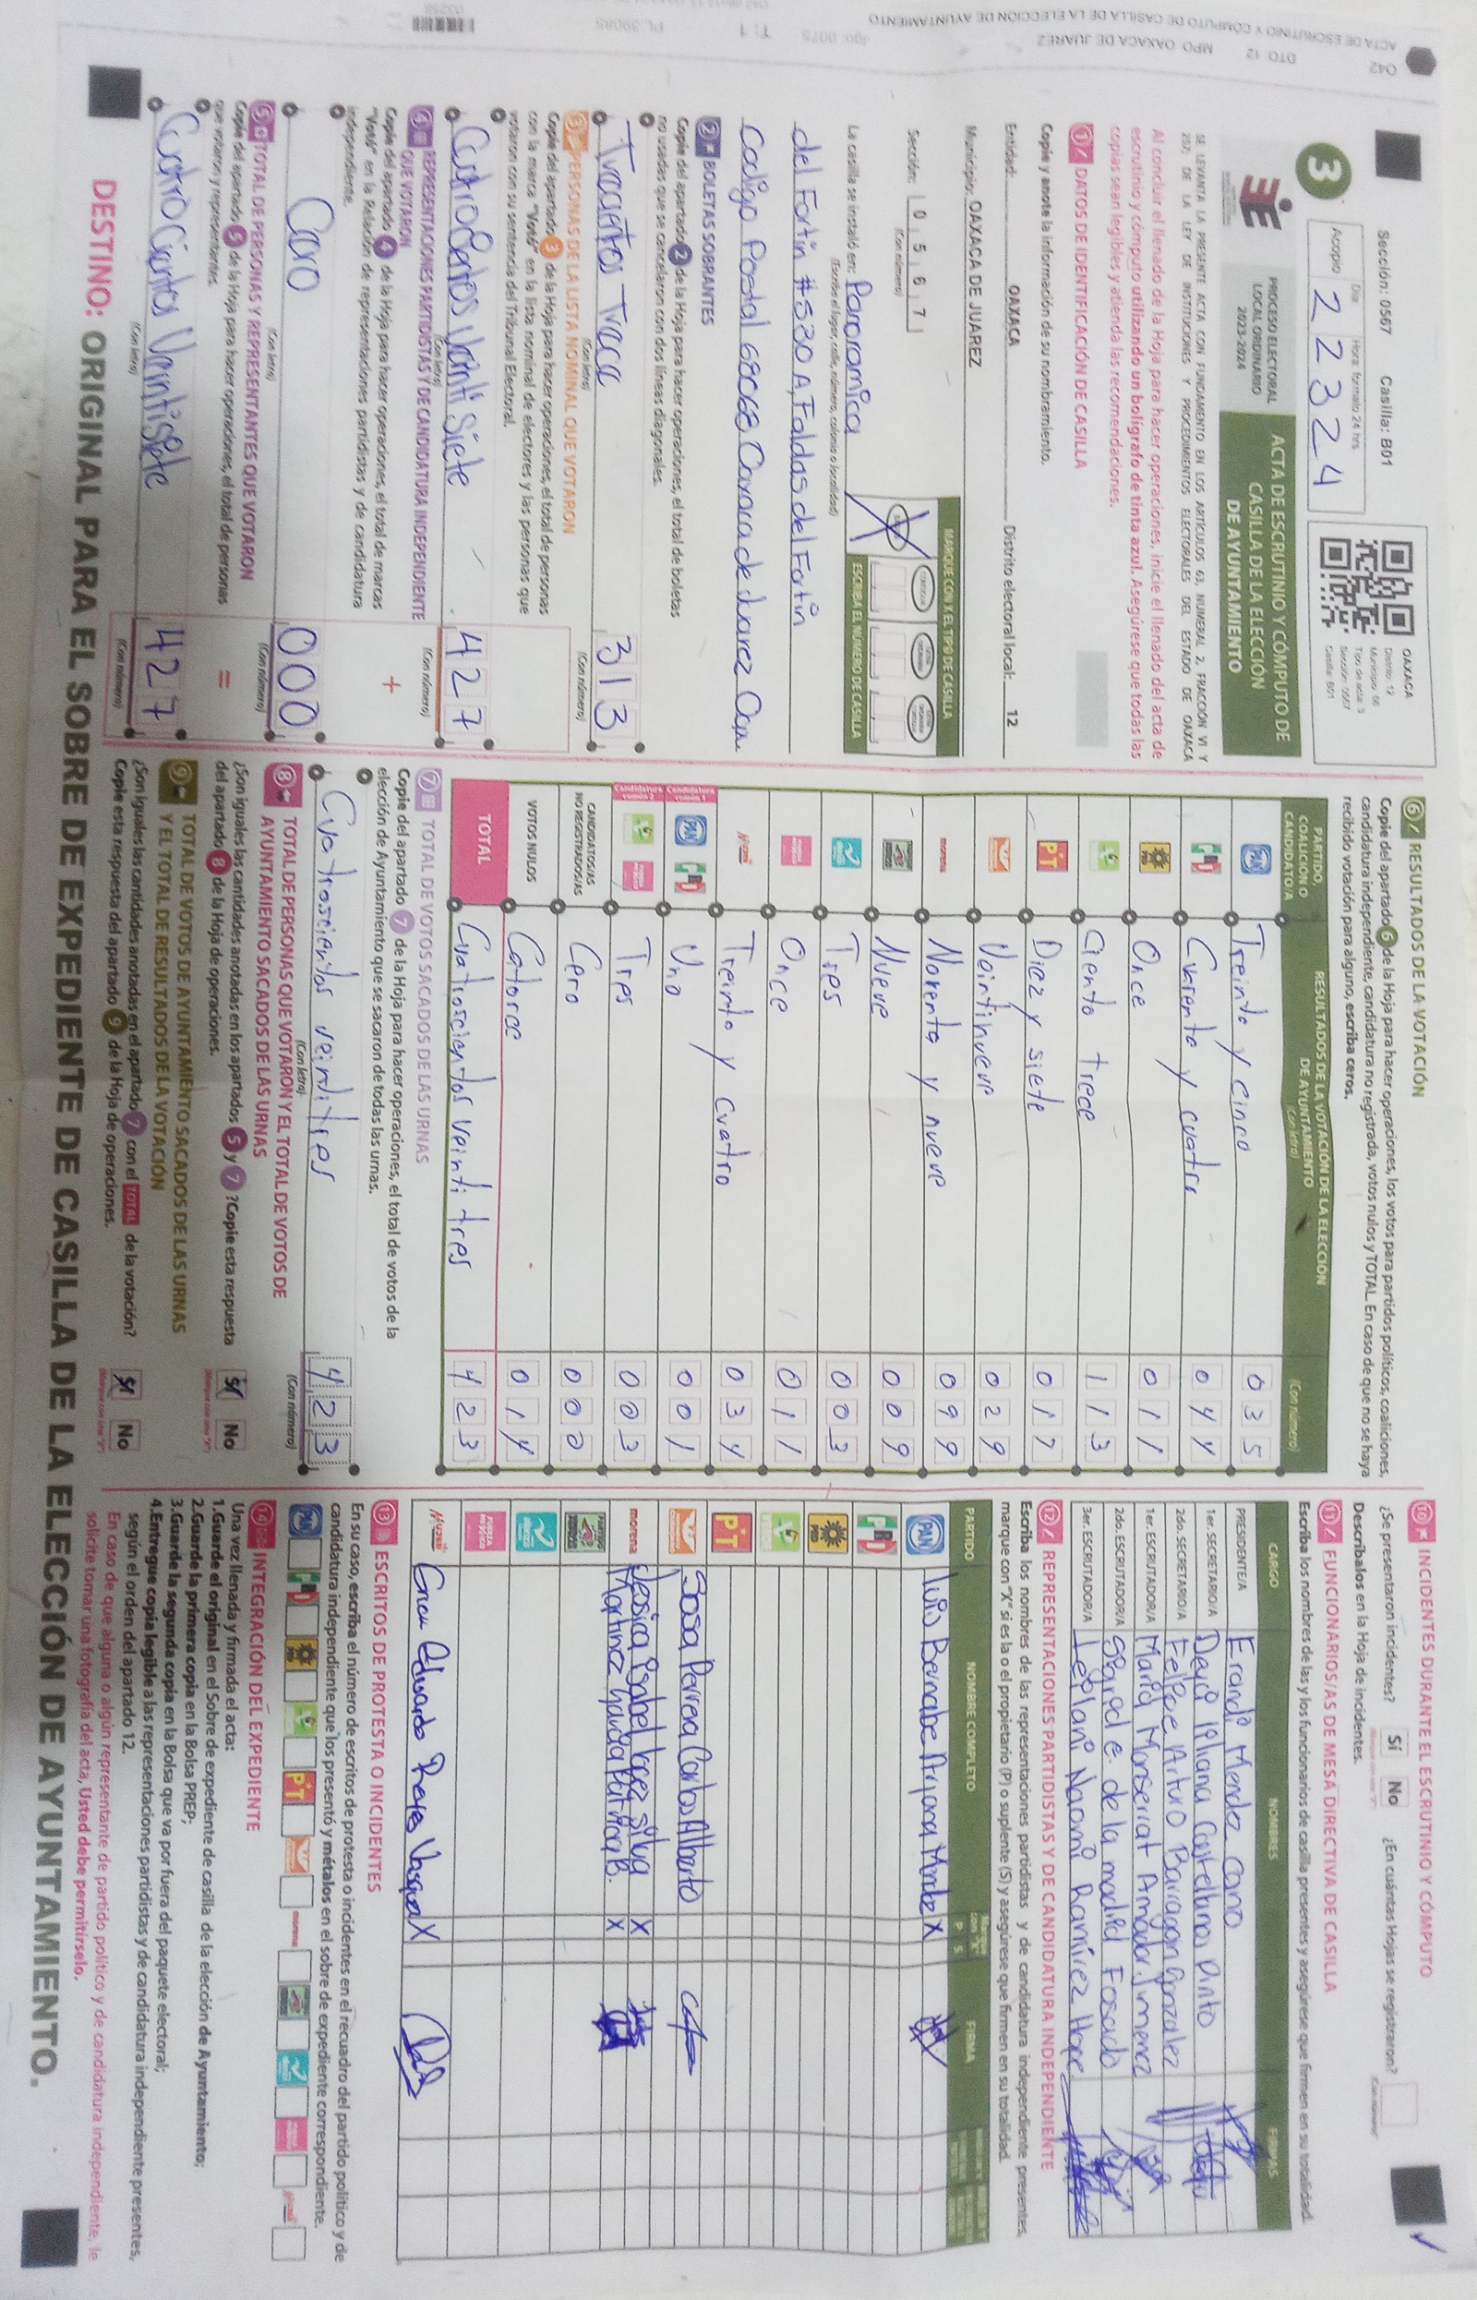 Sección: 0567 Casilla: B01
3
Acopio
Día Hora: formato 24 hrs
2 2 3 2 4
OAXACA
Distrito: 12
Municipio: 66
Sección: 0567
Casilla: B01
PROCESO ELECTORAL
LOCAL ORDINARIO
2023-2024
ACTA DE ESCRUTINIO Y CÓMPUTO DE
CASILLA DE LA ELECCIÓN
DE AYUNTAMIENTO
SE LEVANTA LA PRESENTE ACTA CON FUNDAMENTO EN LOS ARTÍCULOS 63, NUMERAL 2, FRACCIÓN VI Y
DE LA LEY DE INSTITUCIONES Y PROCEDIMIENTOS ELECTORALES DEL ESTADO DE OAXACA
Al concluir el llenado de la Hoja para hacer operaciones, inicie el llenado del acta de
escrutinio y cómputo utilizando un bolígrafo de tinta azul. Asegúrese que todas las
copias sean legibles y atienda las recomendaciones.
1 DATOS DE IDENTIFICACIÓN DE CASILLA
Copie y anote la información de su nombramiento.
Entidad: OAXACA Distrito electoral local: 12
Municipio: OAXACA DE JUAREZ
Sección: 0 5 6 7
(Con número)
MARQUE CON X EL TIPO DE CASILLA
ESCRIBA EL NÚMERO DE CASILLA
La casilla se instaló en: Panoramica
(Escriba el lugar, calle, número, colonia o localidad)
del Fortin #530 A, Faldas del Fortin
Codigo Postal 68068 Oaxaca de Juarez Oax.
2 BOLETAS SOBRANTES
Copie del apartado 2 de la Hoja para hacer operaciones, el total de boletas
no usadas que se cancelaron con dos líneas diagonales.
Trecientos Trece 313
(Con letra) (Con número)
3 PERSONAS DE LA LISTA NOMINAL QUE VOTARON
Copie del apartado 3 de la Hoja para hacer operaciones, el total de personas
con la marca "Votó" en la lista nominal de electores y las personas que
votaron con su sentencia del Tribunal Electoral.
Cuatrocientos Veinti Siete 427
(Con letra) (Con número)
4 REPRESENTACIONES PARTIDISTAS Y DE CANDIDATURA INDEPENDIENTE
QUE VOTARON
Copie del apartado 4 de la Hoja para hacer operaciones, el total de marcas
"Votó" en la Relación de representaciones partidistas y de candidatura
independiente.
+
Cero 000
(Con letra) (Con número)
5 TOTAL DE PERSONAS Y REPRESENTANTES QUE VOTARON
Copie del apartado 5 de la Hoja para hacer operaciones, el total de personas
que votaron y representantes.
=
Cuatrocientos Veintisiete 427
(Con letra) (Con número)
6 RESULTADOS DE LA VOTACIÓN
Copie del apartado 6 de la Hoja para hacer operaciones, los votos para partidos políticos, coaliciones,
candidatura independiente, candidatura no registrada, votos nulos y TOTAL. En caso de que no se haya
recibido votación para alguno, escriba ceros.
PARTIDO, COALICIÓN O CANDIDATO/A
RESULTADOS DE LA VOTACIÓN DE LA ELECCIÓN
DE AYUNTAMIENTO
(Con letra) (Con número)
PAN Treinta y cinco 035
PRI Cuarenta y cuatro 044
PRD Once 011
Ciento trece 113
PT Diez y siete 017
Veintinueve 029
morena Noventa y nueve 099
Nueve 009
Tres 003
Once 011
Treinta y cuatro 034
PAN PRI Uno 001
Tres 003
CANDIDATOS/AS
NO REGISTRADOS/AS Cero 000
VOTOS NULOS Catorce 014
TOTAL Cuatroscientos veinti tres 423
7 TOTAL DE VOTOS SACADOS DE LAS URNAS
Copie del apartado 7 de la Hoja para hacer operaciones, el total de votos de la
elección de Ayuntamiento que se sacaron de todas las urnas.
Cuatroscientos veinti tres 423
(Con letra) (Con número)
8 TOTAL DE PERSONAS QUE VOTARON Y EL TOTAL DE VOTOS DE
AYUNTAMIENTO SACADOS DE LAS URNAS
¿Son iguales las cantidades anotadas en los apartados 5 y 7? Copie esta respuesta
del apartado 8 de la Hoja de operaciones.
Sí No
9 TOTAL DE VOTOS DE AYUNTAMIENTO SACADOS DE LAS URNAS
Y EL TOTAL DE RESULTADOS DE LA VOTACIÓN
¿Son iguales las cantidades anotadas en el apartado 7 con el TOTAL de la votación?
Copie esta respuesta del apartado 9 de la Hoja de operaciones.
Sí No
10 INCIDENTES DURANTE EL ESCRUTINIO Y CÓMPUTO
¿Se presentaron incidentes? Sí No ¿En cuántas Hojas se registraron?
Descríbalos en la Hoja de incidentes.
11 FUNCIONARIOS/AS DE MESA DIRECTIVA DE CASILLA
Escriba los nombres de las y los funcionarios de casilla presentes y asegúrese que firmen en su totalidad.
CARGO NOMBRES FIRMAS
PRESIDENTE/A Erandi Mendez Cano
1er. SECRETARIO/A Deyci Iliana Castellanos Pinto
2do. SECRETARIO/A Felipe Arturo Barragan Gonzalez
1er. ESCRUTADOR/A Maria Monserrat Amador Jimenez
2do. ESCRUTADOR/A Sigrid e. de la madrid Fosado
3er. ESCRUTADOR/A Leilani Naomi Ramirez
12 REPRESENTACIONES PARTIDISTAS Y DE CANDIDATURA INDEPENDIENTE
Escriba los nombres de las representaciones partidistas y de candidatura independiente presentes,
marque con "X" si es la o el propietario (P) o suplente (S) y asegúrese que firmen en su totalidad.
PARTIDO NOMBRE COMPLETO P S FIRMA
PAN Luis Bernabe Arjona X
PRI
PRD
PT
Sosa Perera Carlos Alberto
morena Jessica Isabel Lopez Silva X
Martinez X
Eduardo Reyes Vasquez X
13 ESCRITOS DE PROTESTA O INCIDENTES
En su caso, escriba el número de escritos de protesta o incidentes en el recuadro del partido político y de
candidatura independiente que los presentó y métalos en el sobre de expediente correspondiente.
PAN PRI PRD PT morena
14 INTEGRACIÓN DEL EXPEDIENTE
Una vez llenada y firmada el acta:
1.Guarde el original en el Sobre de expediente de casilla de la elección de Ayuntamiento;
2.Guarde la primera copia en la Bolsa PREP;
3.Guarde la segunda copia en la Bolsa que va por fuera del paquete electoral;
4.Entregue copia legible a las representaciones partidistas y de candidatura independiente presentes,
según el orden del apartado 12.
En caso de que alguna o algún representante de partido político y de candidatura independiente, le
solicite tomar una fotografía del acta, Usted debe permitírselo.
DESTINO: ORIGINAL PARA EL SOBRE DE EXPEDIENTE DE CASILLA DE LA ELECCIÓN DE AYUNTAMIENTO.
042 DTO 12 MPO OAXACA DE JUAREZ
ACTA DE ESCRUTINIO Y CÓMPUTO DE CASILLA DE LA ELECCIÓN DE AYUNTAMIENTO